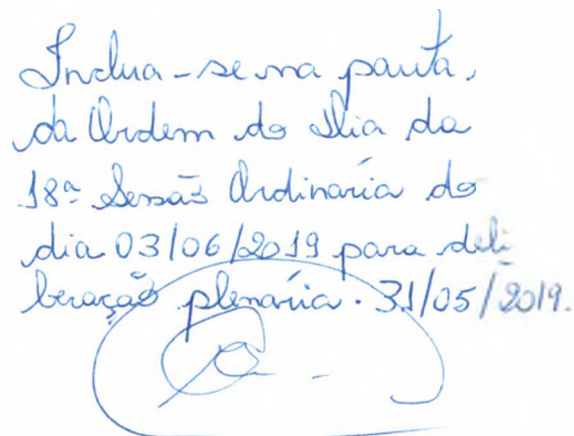 Inclua-se na pauta,
da Ordem do Dia da
18ª Sessão Ordinária do
dia 03/06/2019 para deli
beração plenária. 31/05/2019.